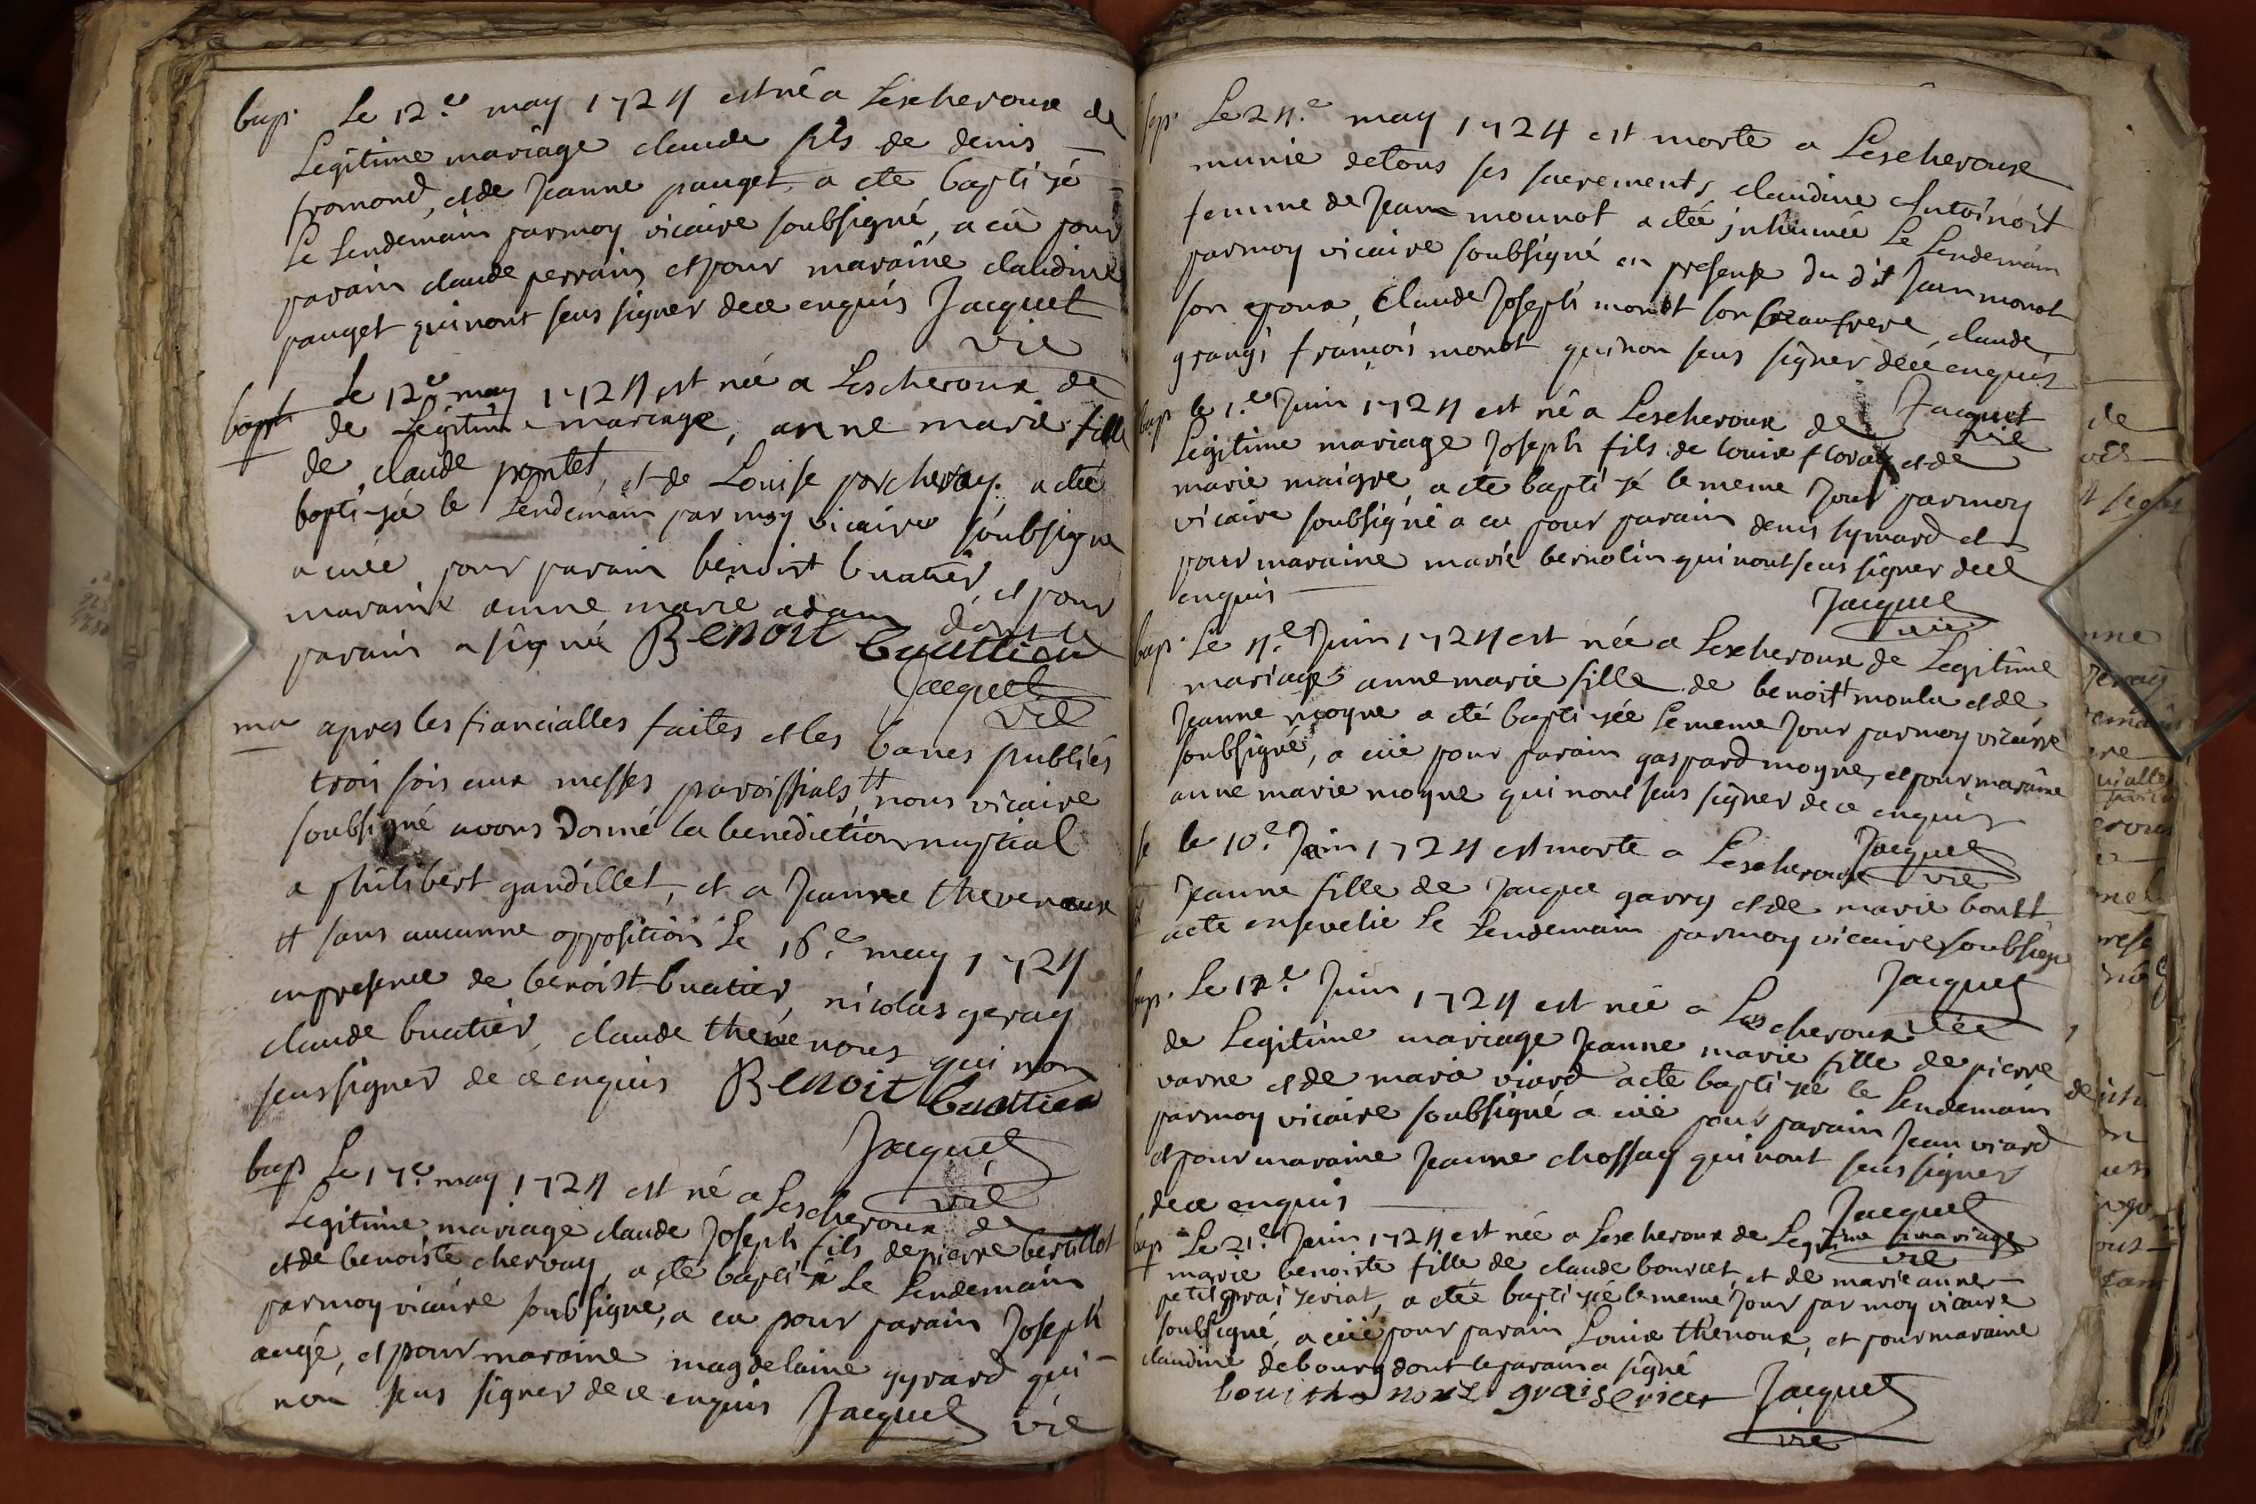 bap. Le 12.e may 1724 est né a Lescheroux de
Legitime mariage claude fils de denis
fromond, et de Jeanne pauget a ete baptizé
Le Lendemain par moy vicaire soubsigné, a eu pour
parain claude perrain et pour maraine claudine
pauget qui nont seus signer de ce enquis Jacquet
vic
bapt Le 12e may 1724 est neé a Lescheroux de
de Legitime mariage, anne marie fille
de claude pontet, et de Louise porcheray. a eté
baptizeé le Lendemain par moy vicaire soubsigne
a eueé pour parain benoist buatier, et pour
maraine anne marie adam dont le
parain a signé Benoit buattier
Jacquet
vic
ma apres les fiancialles faites et les bancs publiés
trois fois aux messes paroissials # nous vicaire
soubsigné avons donné la benediction nuptial
a philibert gandillet, et a Jeanne thevenoux
# sans aucunne opposition Le 16.e may 1724
en presence de benoist buatier, nicolas geray
claude buatier, claude thevenoux qui non
seus signer de ce enquis Benoit buattier
Jacquet
vic
bap Le 17.e may 1724 est né a Lescheroux de
Legitime mariage claude Joseph fils de pierre bertillot
et de benoiste chervay, a eté baptizé Le Lendemain
par moy vicaire soubsigne, a eu pour parain Joseph
augé, et pour maraine magdelaine gyrard qui
non seus signer de ce enquis Jacquet vic
sep. Le 24.e may 1724 est morte a Lescheroux
munie de tous ses sacrements claudine Antoinoit
femme de Jean mounot a eteé inhumeé Le Lendemain
par moy vicaire soubsigné en presence du dit Jean monot
son epoux, Claude Joseph monot son beaufrere, claude
grangi francois monot qui non seus signer de ce enquis
Jacquet
vic
bap le 1.er Juin 1724 est né a Lescheroux de
Legitime mariage Joseph fils de louis floray et de
marie maigre, a ete baptizé le meme Jour par moy
vicaire soubsigné a eu pour parain denis symard et
pour maraine marie bernolin qui nont seus signer de ce
enquis
Jacquet
vic
bap. Le 4.e Juin 1724 est neé a Lescheroux de Legitime
mariage anne marie fille de benoist moula et de
Jeanne moyne a eté baptizeé Le meme Jour par moy vicaire
soubsigné, a eüe pour parain gaspard moyne, et pour maraine
anne marie moyne qui nont seus signer de ce enquis
Jacquet
vic
le 10.e Juin 1724 est morte a Lescheroux
Jeanne fille de Jacque garry et de marie boutt
a ete ensevelie Le Lendemain par moy vicaire soubsigne
Jacquet
vic
bap. Le 12.e Juin 1724 est neé a Lescheroux
de Legitime mariage Jeanne marie fille de pierre
varne et de marie viard a ete baptizeé le Lendemain
par moy vicaire soubsigné a eüe pour parain Jean viard
et pour maraine Jeanne chossay qui nont seus signer
de ce enquis
Jacquet
vic
bap Le 21.e Juin 1724 est neé a Lescheroux de Legitime mariage
marie benoiste fille de claude bourcet, et de marie anne
petit graizeriat, a eteé baptizeé le meme Jour par moy vicaire
soubsigné, a eüe pour parain Louis thenoux, et pour maraine
claudine debourg dont le parain a signé
Jacquet
vic